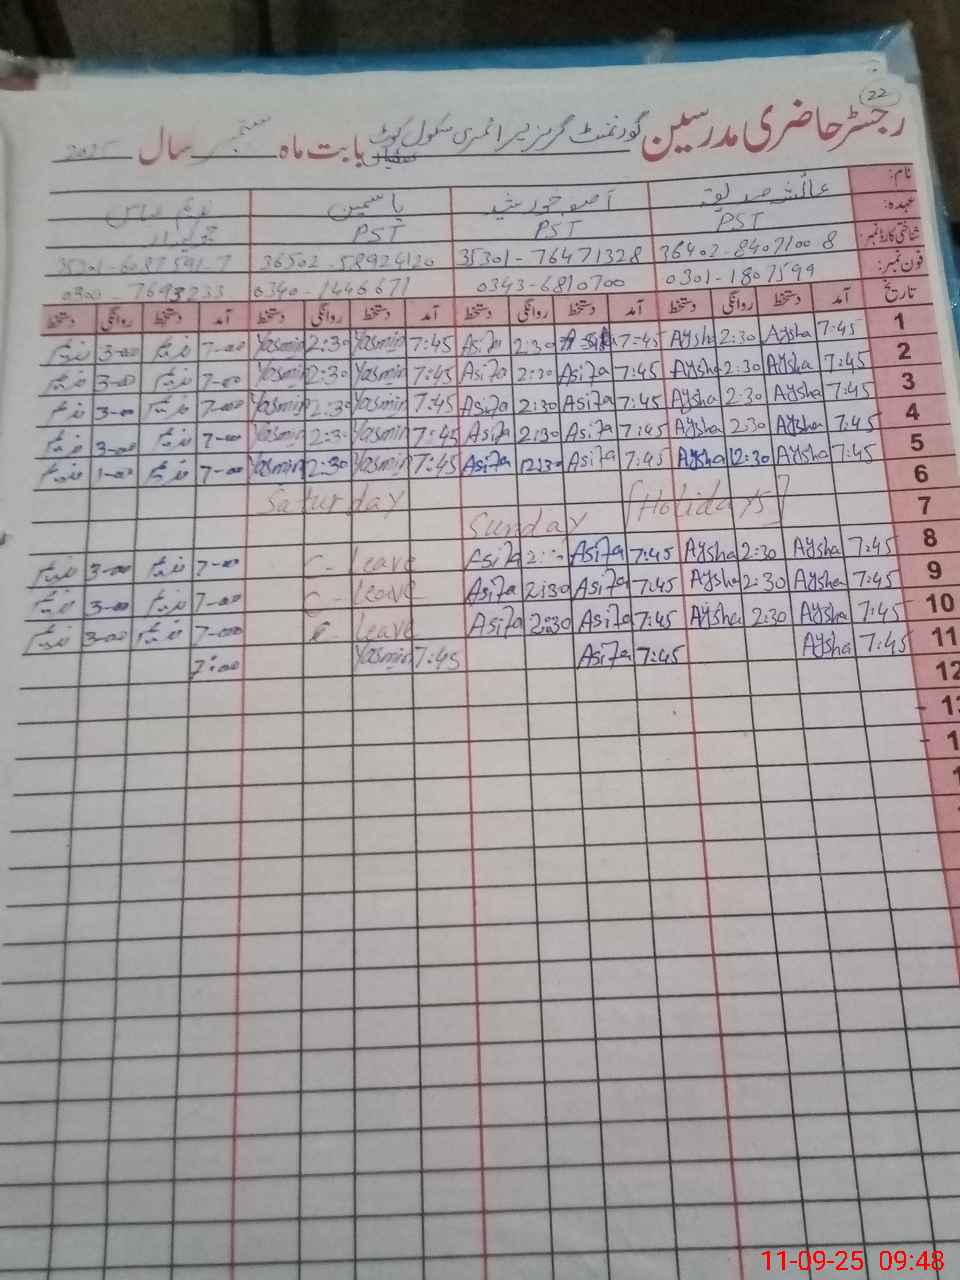 22
رجسٹر حاضری مدرسین گورنمنٹ گرلز پرائمری سکول کوٹ بابت ماہ ستمبر سال 2025
نام: عائشہ صدیقہ آصفہ خورشید یاسمین
عہدہ: PST PST PST چوکیدار
شناختی کارڈ نمبر: 36402-8407100-8 35301-76471328 36502-58924120
فون نمبر: 0301-1807599 0343-6810700 0340-1446671 0300-7693233
تاریخ آمد دستخط روانگی دستخط آمد دستخط روانگی دستخط آمد دستخط روانگی دستخط آمد دستخط روانگی دستخط
1 7:45 Aysha 2:30 Aysha 7:45 Asifa 2:30 Asifa 7:45 Yasmin 2:30 Yasmin 7-00 3-00
2 7:45 Aysha 2:30 Aysha 7:45 Asifa 2:30 Asifa 7:45 Yasmin 2:30 Yasmin 7-00 3-00
3 7:45 Aysha 2:30 Aysha 7:45 Asifa 2:30 Asifa 7:45 Yasmin 2:30 Yasmin 7-00 3-00
4 7:45 Aysha 2:30 Aysha 7:45 Asifa 2:30 Asifa 7:45 Yasmin 2:30 Yasmin 7-00 3-00
5 7:45 Aysha 2:30 Aysha 7:45 Asifa 2:30 Asifa 7:45 Yasmin 2:30 Yasmin 7-00 1-00
6 Saturday
7 Sunday [Holidays]
8 7:45 Aysha 2:30 Aysha 7:45 Asifa Asifa C-Leave 7-00 3-00
9 7:45 Aysha 2:30 Aysha 7:45 Asifa 2:30 Asifa C-Leave 7-00 3-00
10 7:45 Aysha 2:30 Aysha 7:45 Asifa 2:30 Asifa C-Leave 7-00 3-00
11 7:45 Aysha 7:45 Asifa 7:45 Yasmin 7:00
12
11-09-25 09:48